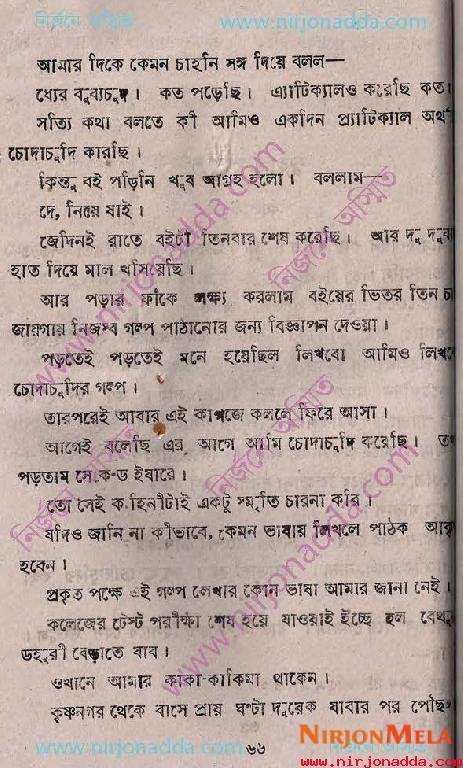 নির্জনে অস্মিত www.nirjonadda.com
আমার দিকে কেমন চাহনি সঙ্গ দিয়ে বলল—
ধ্যের বুব্যচন্দ । কত পড়েছি । প্র্যাটিক্যালও করেছি কত।
সত্যি কথা বলতে কী আমিও একদিন প্র্যাটিক্যাল অর্থা
চোদাচুদি করেছি ।
কিন্তু বই পড়িনি খুব আগ্রহ হলো । বললাম—
দে, নিয়ে যাই ।
জেদিনই রাতে বইটা তিনবার শেষ করেছি । আর দু দুবা
হাত দিয়ে মাল খসিয়েছি ।
আর পড়ার ফাঁকে লক্ষ্য করলাম বইয়ের ভিতর তিন চা
জায়গায় নিজস্ব গল্প পাঠানোর জন্য বিজ্ঞাপন দেওয়া ।
পড়তেই পড়তেই মনে হয়েছিল লিখবো আমিও লিখবো
চোদাচুদির গল্প ।
তারপরেই আবার এই কাগজে কলমে ফিরে আসা ।
আগেই বলেছি এর আগে আমি চোদাচুদি করেছি । তখ
পড়তাম সেকেণ্ড ইয়ারে ।
তো সেই কাহিনীটাই একটু স্মৃতি চারনা করি ।
যদিও জানি না কীভাবে, কেমন ভাষায় লিখলে পাঠক আকৃ
হবেন ।
প্রকৃত পক্ষে এই গল্প লেখার কোন ভাষা আমার জানা নেই ।
কলেজের টেস্ট পরীক্ষা শেষ হয়ে যাওয়াই ইচ্ছে হল
বেড়াতে যাব ।
ওখানে আমার কাকা-কাকিমা থাকেন ।
কৃষ্ণনগর থেকে বাসে প্রায় ঘণ্টা দুয়েক যাবার পর পৌঁছ
NIRJONMELA
www.nirjonadda.com ৬৬ নির্জনে অস্মিত
www.nirjonadda.com